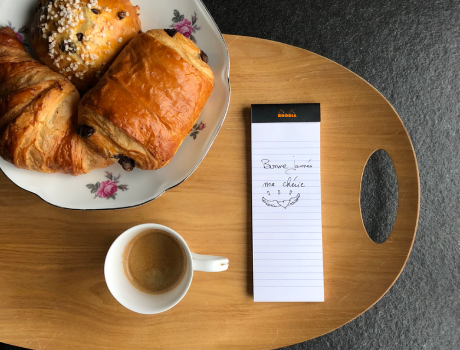 RHODIA
Bonne journée
ma chérie